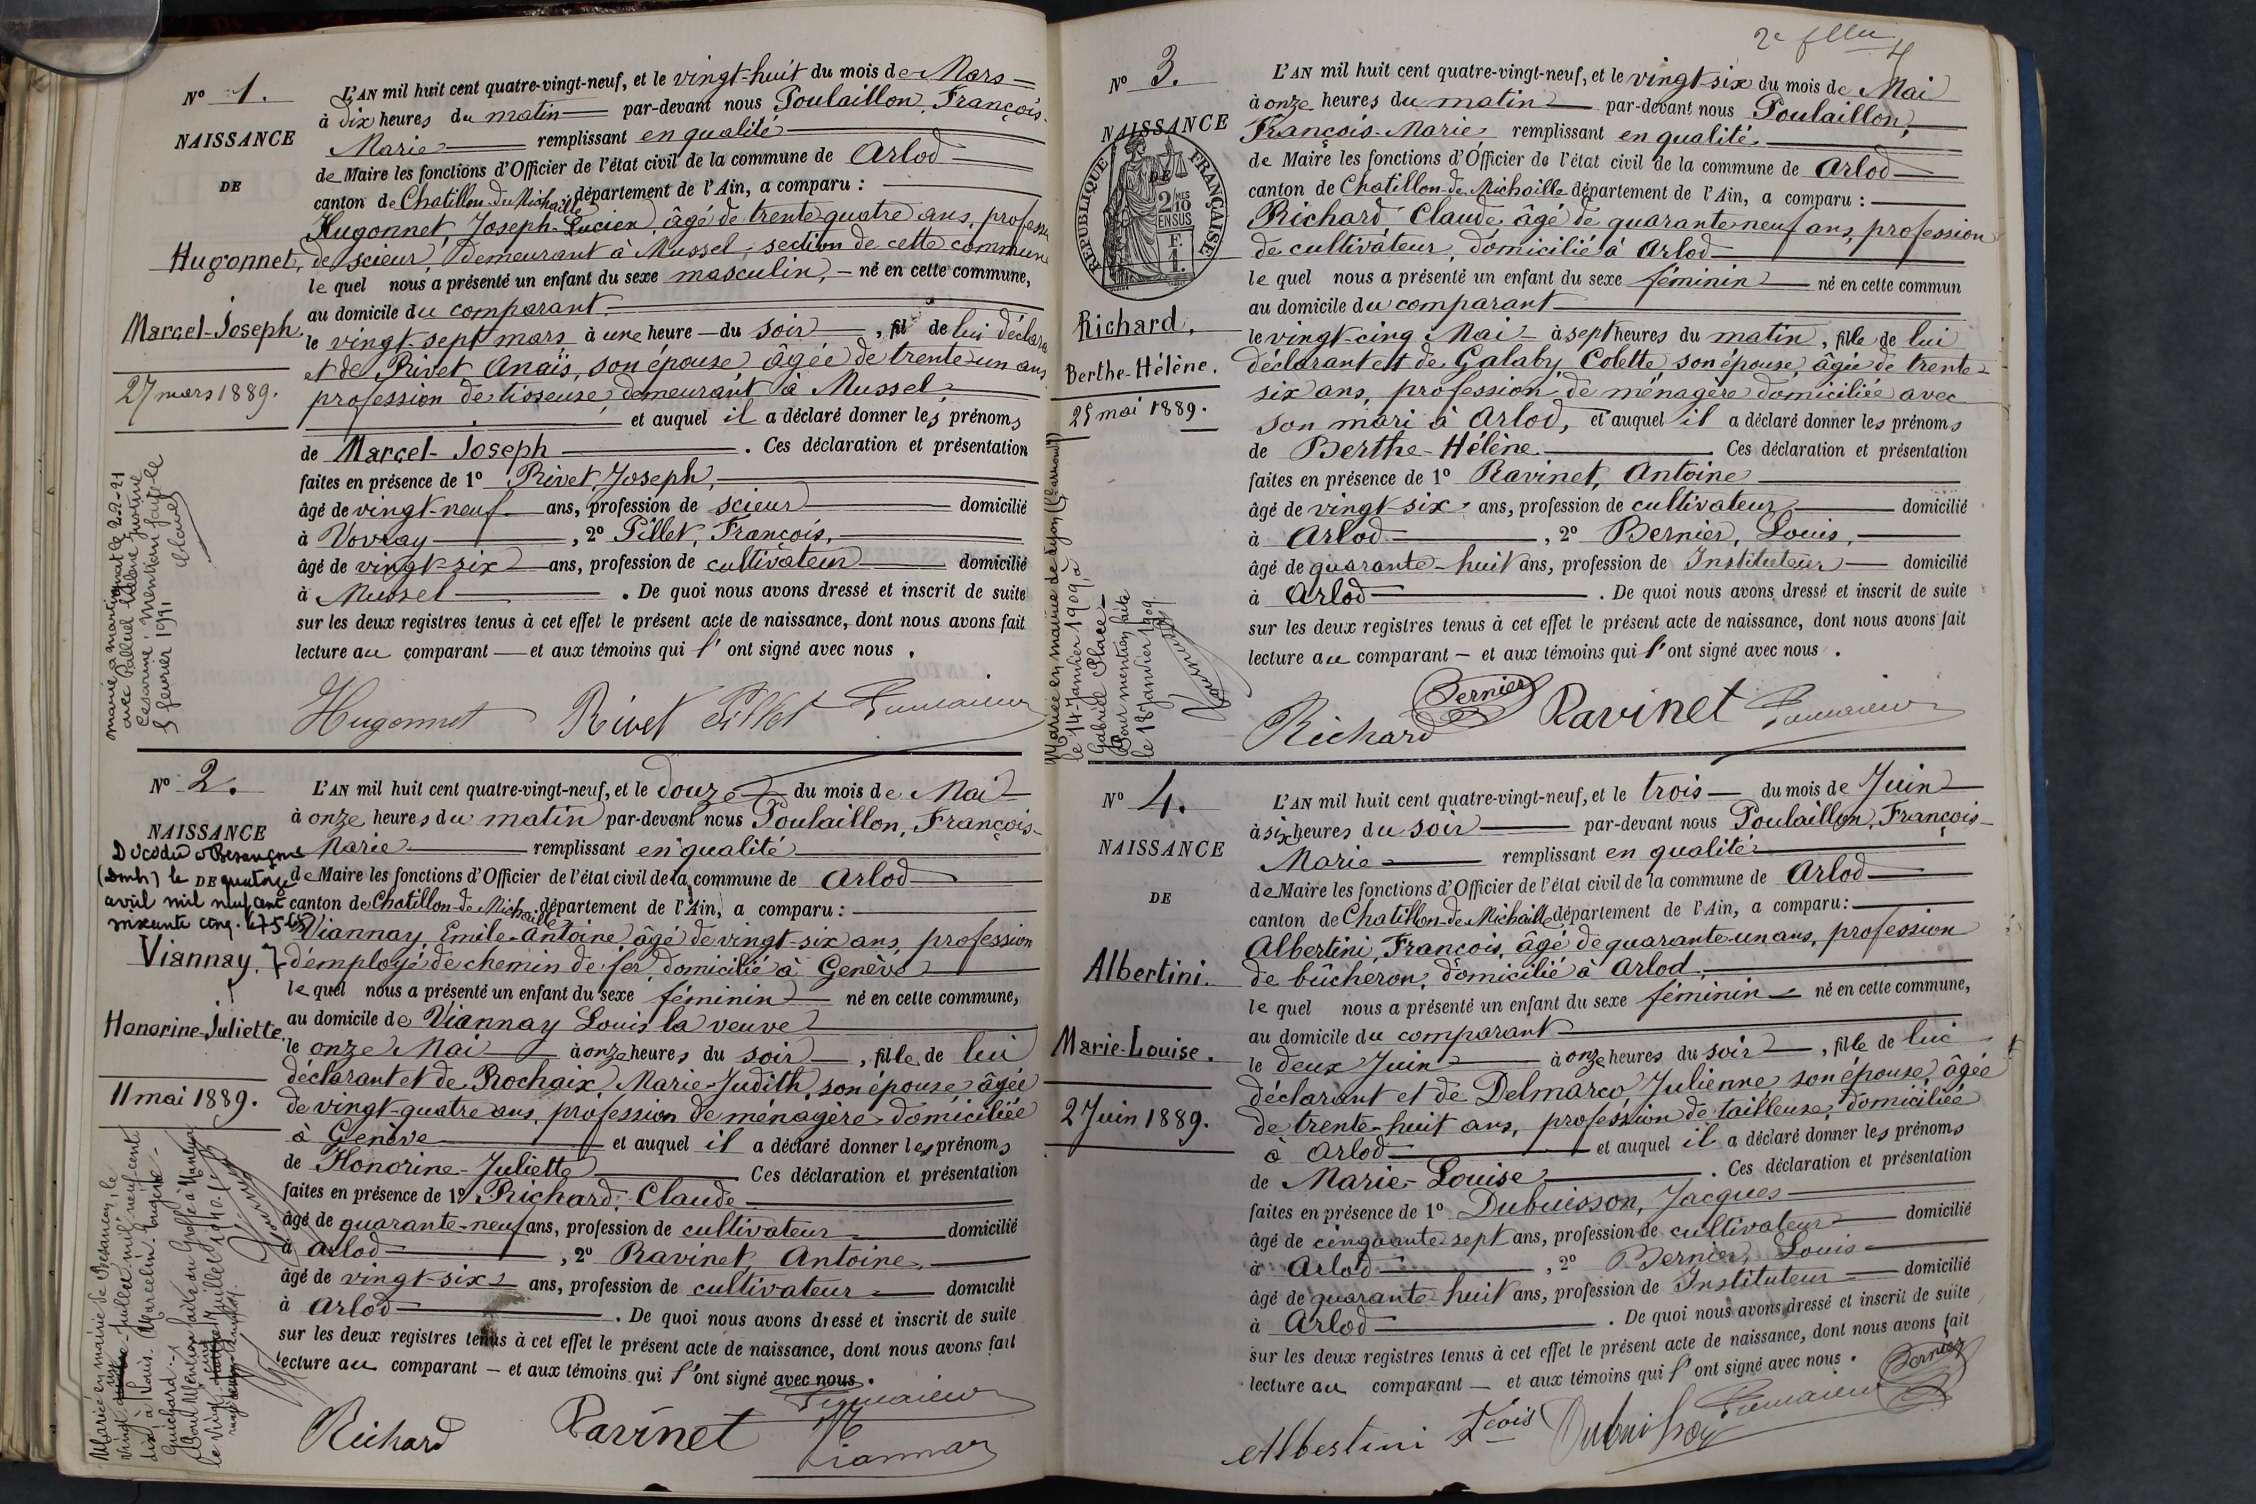 N° 1.
NAISSANCE
DE
Hugonnet,
Marcel-Joseph.
27 mars 1889.
L'AN mil huit cent quatre-vingt-neuf, et le vingt-huit du mois de Mars
à dix heures du matin par-devant nous Poulaillon, François-
Marie remplissant en qualité
de Maire les fonctions d'Officier de l'état civil de la commune de Arlod
canton de Chatillon-de-Michaille département de l'Ain, a comparu :
Hugonnet, Joseph-Lucien, âgé de trente-quatre ans, profession
de scieur, demeurant à Mussel, section de cette commune
lequel nous a présenté un enfant du sexe masculin, né en cette commune,
au domicile du comparant
le vingt-sept mars à une heure du soir, fil de lui déclarant
et de Rivet Anaïs, son épouse, âgée de trente-un ans
profession de tisseuse, demeurant à Mussel,
et auquel il a déclaré donner les prénoms
de Marcel-Joseph. Ces déclaration et présentation
faites en présence de 1° Rivet, Joseph,
âgé de vingt-neuf ans, profession de scieur domicilié
à Vovray, 2° Pillet, François,
âgé de vingt-six ans, profession de cultivateur domicilié
à Mussel. De quoi nous avons dressé et inscrit de suite
sur les deux registres tenus à cet effet le présent acte de naissance, dont nous avons fait
lecture au comparant et aux témoins qui l'ont signé avec nous.
Hugonnet Rivet Pillet
N° 2.
NAISSANCE
DE
Décédée à Besançon
(Doubs) le quatorze
avril mil neuf cent
soixante cinq.
Viannay,
Honorine-Juliette.
11 mai 1889.
Mariée en mairie de Besançon, le
vingt juillet mil neuf cent
dix, à Louis Marcelin Eugène
Guichard.
L'AN mil huit cent quatre-vingt-neuf, et le douze du mois de Mai
à onze heures du matin par-devant nous Poulaillon, François-
Marie remplissant en qualité
de Maire les fonctions d'Officier de l'état civil de la commune de Arlod
canton de Chatillon-de-Michaille département de l'Ain, a comparu :
Viannay, Emile-Antoine âgé de vingt-six ans, profession
d'employé de chemin de fer, domicilié à Genève
lequel nous a présenté un enfant du sexe féminin né en cette commune,
au domicile de Viannay Louis la veuve
le onze Mai à onze heures du soir, fille de lui
déclarant et de Rochaix Marie-Judith, son épouse, âgée
de vingt-quatre ans, profession de ménagère domiciliée
à Genève et auquel il a déclaré donner les prénoms
de Honorine-Juliette Ces déclaration et présentation
faites en présence de 1° Richard, Claude
âgé de quarante-neuf ans, profession de cultivateur domicilié
à Arlod, 2° Ravinet, Antoine,
âgé de vingt-six ans, profession de cultivateur domicilié
à Arlod. De quoi nous avons dressé et inscrit de suite
sur les deux registres tenus à cet effet le présent acte de naissance, dont nous avons fait
lecture au comparant et aux témoins qui l'ont signé avec nous.
Richard Ravinet Viannay
4
N° 3.
NAISSANCE
DE
RÉPUBLIQUE FRANÇAISE
2/10 EN SUS
Richard,
Berthe-Hélène.
25 mai 1889.
Mariée en mairie de
le 14 janvier 1909, à
Gabriel Place
Pour mention faite
le 18 janvier 1909.
L'AN mil huit cent quatre-vingt-neuf, et le vingt-six du mois de Mai
à onze heures du matin par-devant nous Poulaillon,
François-Marie remplissant en qualité
de Maire les fonctions d'Officier de l'état civil de la commune de Arlod
canton de Chatillon-de-Michaille département de l'Ain, a comparu :
Richard Claude âgé de quarante-neuf ans, profession
de cultivateur, domicilié à Arlod
lequel nous a présenté un enfant du sexe féminin né en cette commun
au domicile du comparant
le vingt-cinq Mai à sept heures du matin, fille de lui
déclarant et de Galaby, Colette son épouse, âgée de trente-
six ans, profession de ménagère domiciliée avec
son mari à Arlod, et auquel il a déclaré donner les prénoms
de Berthe-Hélène. Ces déclaration et présentation
faites en présence de 1° Ravinet, Antoine
âgé de vingt-six ans, profession de cultivateur domicilié
à Arlod, 2° Bernier, Louis,
âgé de quarante-huit ans, profession de Instituteur domicilié
à Arlod. De quoi nous avons dressé et inscrit de suite
sur les deux registres tenus à cet effet le présent acte de naissance, dont nous avons fait
lecture au comparant et aux témoins qui l'ont signé avec nous.
Richard Bernier Ravinet
N° 4.
NAISSANCE
DE
Albertini.
Marie-Louise.
2 Juin 1889.
L'AN mil huit cent quatre-vingt-neuf, et le trois du mois de Juin
à six heures du soir par-devant nous Poulaillon, François-
Marie remplissant en qualité
de Maire les fonctions d'Officier de l'état civil de la commune de Arlod
canton de Chatillon-de-Michaille département de l'Ain, a comparu :
Albertini, François, âgé de quarante-un ans, profession
de bûcheron, domicilié à Arlod,
lequel nous a présenté un enfant du sexe féminin né en cette commune,
au domicile du comparant
le deux Juin à onze heures du soir, fille de lui
déclarant et de Delmarco Julienne son épouse, âgée
de trente-huit ans, profession de tailleuse, domiciliée
à Arlod et auquel il a déclaré donner les prénoms
de Marie-Louise. Ces déclaration et présentation
faites en présence de 1° Dubuisson, Jacques
âgé de cinquante sept ans, profession de cultivateur domicilié
à Arlod, 2° Bernier, Louis
âgé de quarante-huit ans, profession de Instituteur domicilié
à Arlod. De quoi nous avons dressé et inscrit de suite
sur les deux registres tenus à cet effet le présent acte de naissance, dont nous avons fait
lecture au comparant et aux témoins qui l'ont signé avec nous.
Bernier
Albertini Fçois Dubuisson